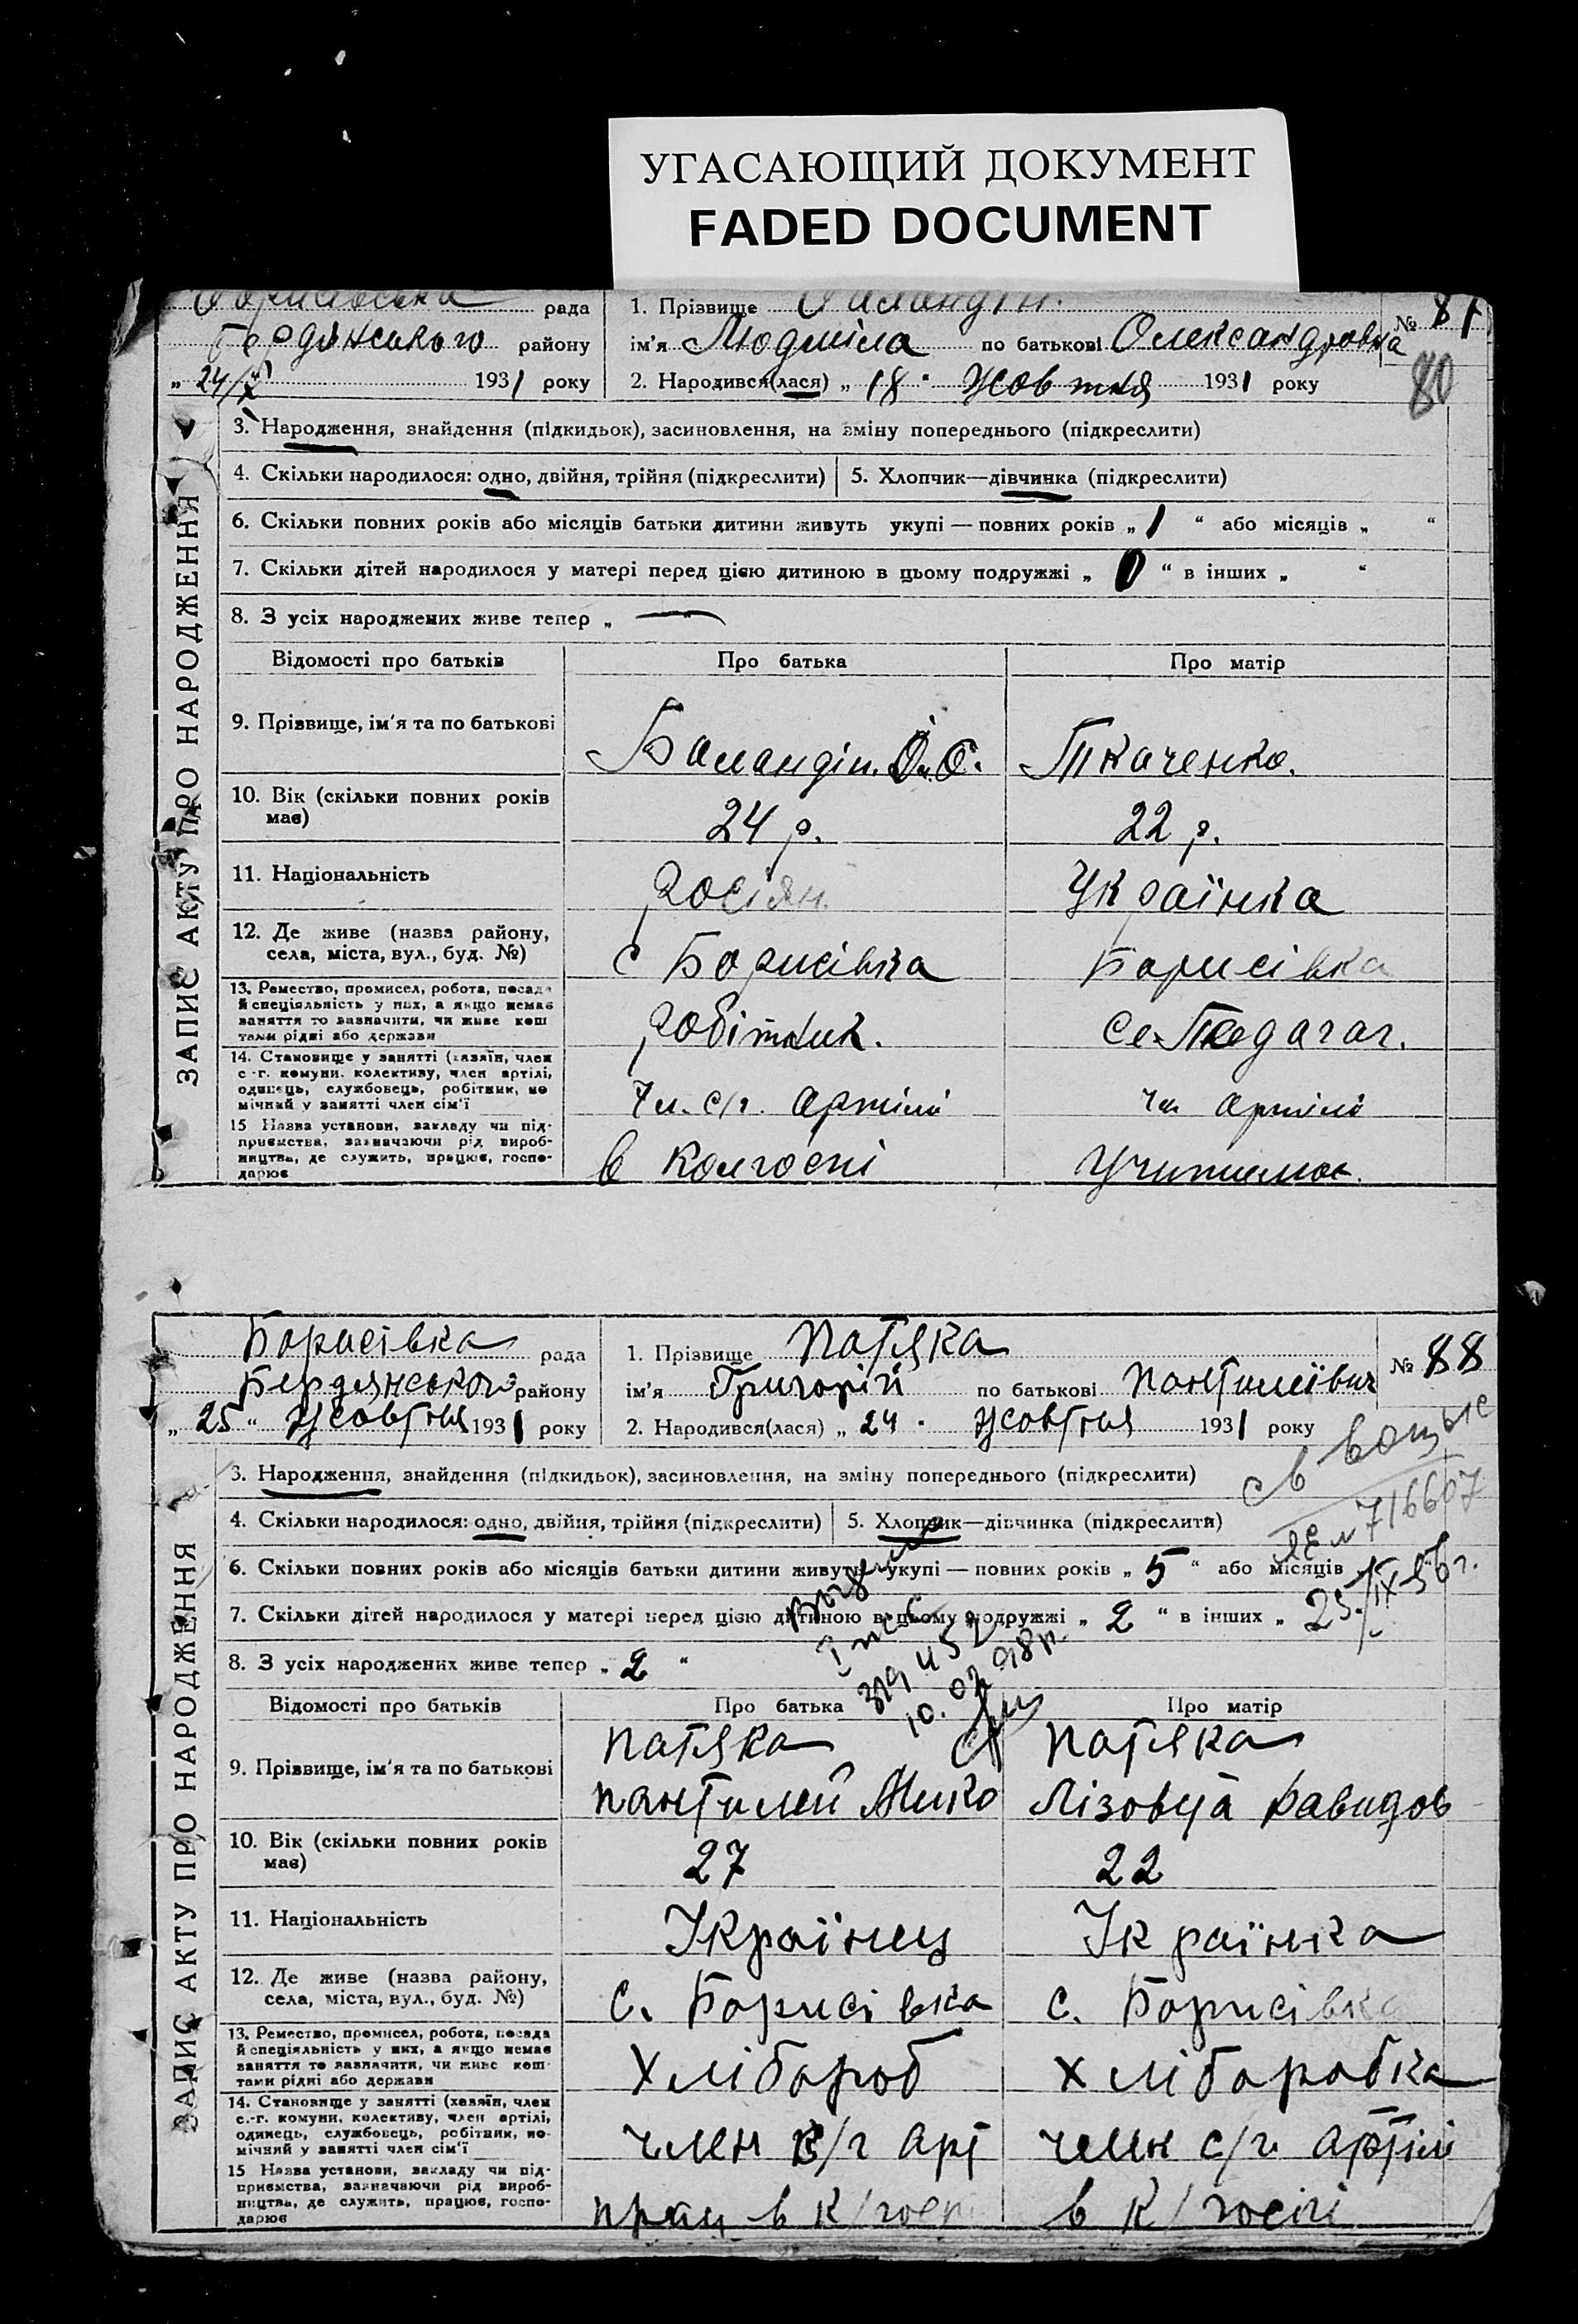 УГАСАЮЩИЙ ДОКУМЕНТ
FADED DOCUMENT
рада
Бердянського району
„ 24/X 1931 року
1. Прізвище
ім'я Людміла по батькові Олександровна
2. Народився(лася) „ 18 " Жовтня 1931 року
№ 87
80
ЗАПИС АКТУ ПРО НАРОДЖЕННЯ
3. Народження, знайдення (підкидьок), засиновлення, на зміну попереднього (підкреслити)
4. Скільки народилося: одно, двійня, трійня (підкреслити)
5. Хлопчик—дівчинка (підкреслити)
6. Скільки повних років або місяців батьки дитини живуть укупі — повних років „ 1 “ або місяців „ “
7. Скільки дітей народилося у матері перед цією дитиною в цьому подружжі „ 0 “ в інших „ “
8. З усіх народжених живе тепер „ —
Відомості про батьків Про батька Про матір
9. Прізвище, ім'я та по батькові Баландін. О. Ткаченко.
10. Вік (скільки повних років має) 24 р. 22 р.
11. Національність росіян. Українка
12. Де живе (назва району, села, міста, вул., буд. №) с Борисівка Борисівка
13. Ремество, промисел, робота, посада й спеціяльність у них, а якщо немає заняття то зазначити, чи живе коштами рідні або держави робітник. Педагог.
14. Становище у занятті (хазяїн, член с.-г. комуни, колективу, член артілі, одинець, службовець, робітник, помічний у занятті член сім'ї чл. с/г. артілі чл артілі
15 Назва установи, закладу чи підприємства, зазначаючи рід виробництва, де служить, працює, господарює в колгоспі
Борисівка рада
Бердянського району
„ 25 “ Жовтня 1931 року
1. Прізвище Патяка
ім'я Григорій по батькові Пантилеївич
2. Народився(лася) „ 24 " жовтня 1931 року
№ 88
716607
25/IX-56 г.
ЗАПИС АКТУ ПРО НАРОДЖЕННЯ
3. Народження, знайдення (підкидьок), засиновлення, на зміну попереднього (підкреслити)
4. Скільки народилося: одно, двійня, трійня (підкреслити)
5. Хлопчик—дівчинка (підкреслити)
6. Скільки повних років або місяців батьки дитини живуть укупі — повних років „ 5 “ або місяців
7. Скільки дітей народилося у матері перед цією дитиною в цьому подружжі „ 2 “ в інших „
8. З усіх народжених живе тепер „ 2 “
10.02.98р.
Відомості про батьків Про батька Про матір
9. Прізвище, ім'я та по батькові Патяка Пантилей Мико Патяка Лізовута Давидов
10. Вік (скільки повних років має) 27 22
11. Національність Українец Українка
12. Де живе (назва району, села, міста, вул., буд. №) с. Борисівка с. Борисівка
13. Ремество, промисел, робота, посада й спеціяльність у них, а якщо немає заняття то зазначити, чи живе коштами рідні або держави Хлібороб Хліборобка
14. Становище у занятті (хазяїн, член с.-г. комуни, колективу, член артілі, одинець, службовець, робітник, помічний у занятті член сім'ї член с/г арт член с/г артілі
15 Назва установи, закладу чи підприємства, зазначаючи рід виробництва, де служить, працює, господарює прац в к/госп в к/госпі